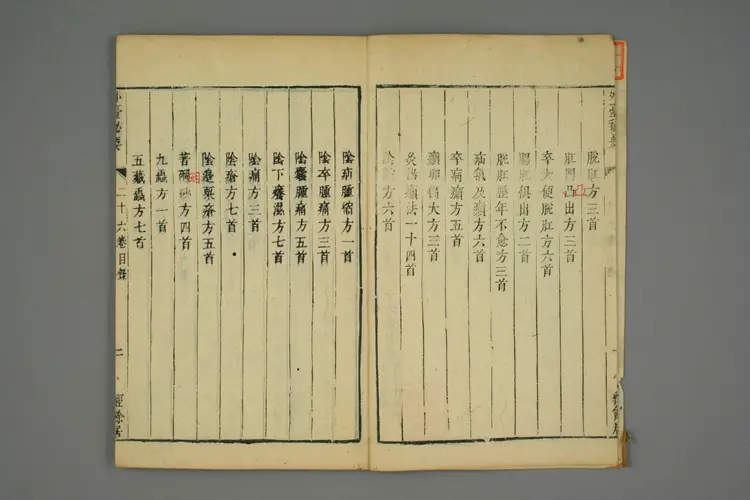 外臺秘要
脫肛方三首
肛門凸出方三首
卒大便脫肛方六首
腸肛俱出方二首
脫肛歷年不愈方三首
疝氣及㿗方六首
卒病㿗方五首
㿗卵偏大方三首
灸諸㿗法一十四首
陰 方六首
陰疝腫縮方一首
陰卒腫痛方三首
陰囊腫痛方五首
陰下癢濕方七首
陰痛方三首
陰瘡方七首
陰邊粟瘡方五首
著硇砂方四首
九蟲方一首
五藏蟲方七首
外臺秘要
二十六卷目錄
二
經餘居